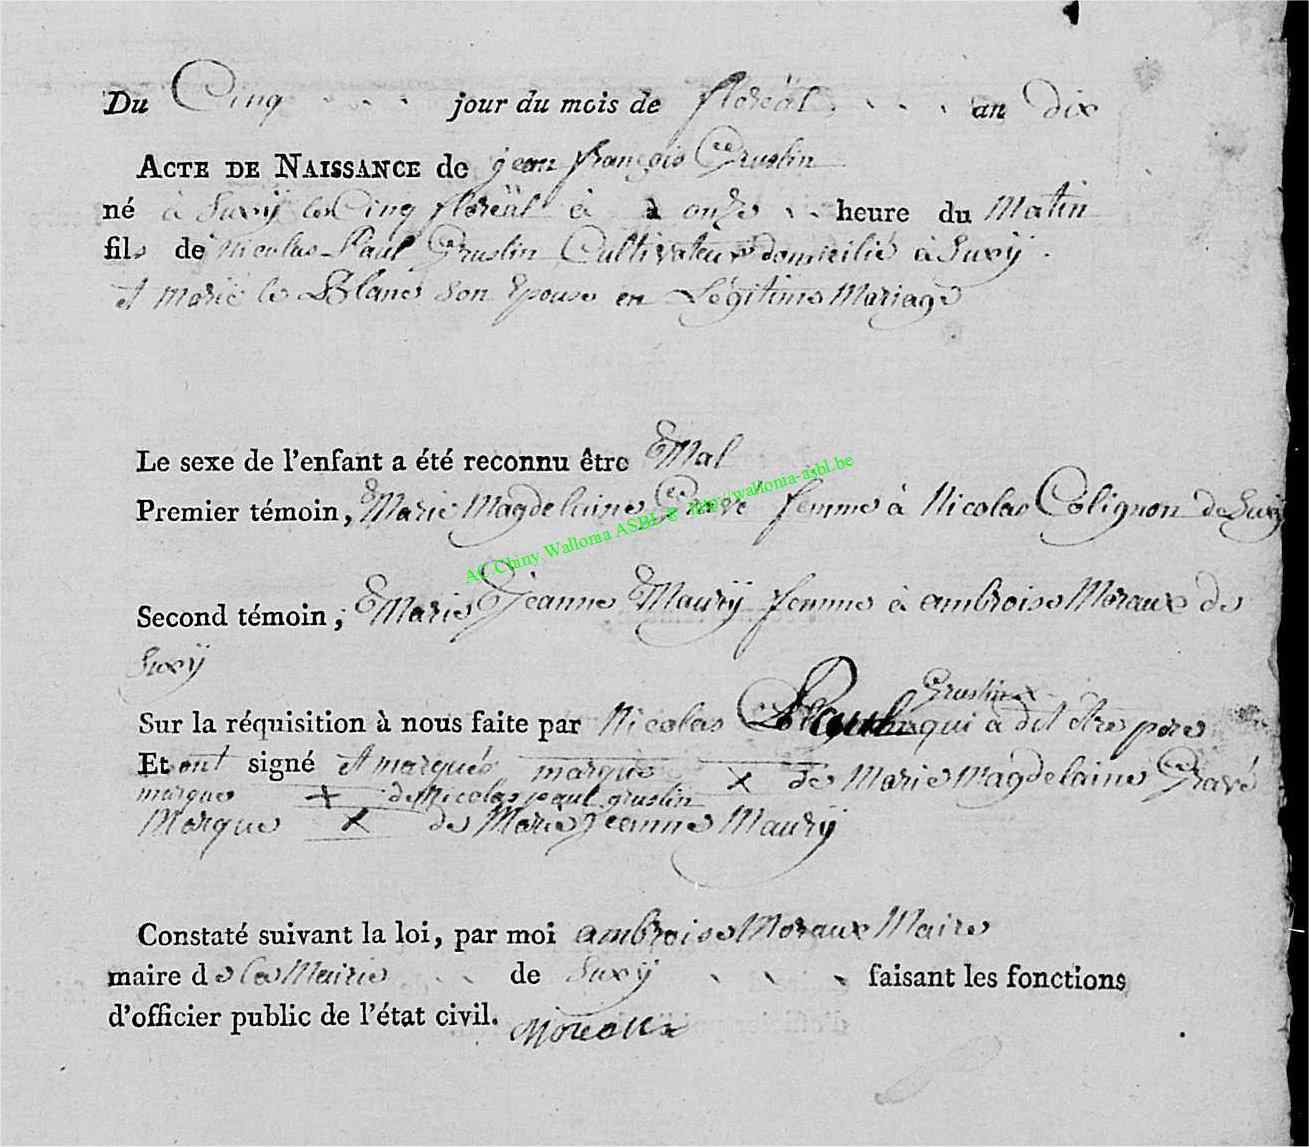 Du Cinq jour du mois de floréäl an dix
ACTE DE NAISSANCE de jean françois Gruslin
né à Suxÿ le Cinq floréäl à onze heure du Matin
fils de Nicolas Paul Gruslin Cultivateur domicilié à Suxÿ.
et Marie le Blanc Son Epouse en Légitime Mariage
Le sexe de l'enfant a été reconnu être Mal
Premier témoin, Marie Magdelaine Gravé femme à Nicolas Colignon de Suxÿ
AC Chiny Wallonia ASBL © http://wallonia-asbl.be
Second témoin, Marie Jeanne Maurÿ femme à ambroise Moraux de
Suxÿ
Gruslin
Sur la réquisition à nous faite par Nicolas Paul qui a dit être pere
Et ont signé et marqués marque X de Marie Magdelaine Gravé
marque X de Nicolas paul gruslin
Marque X de Marie Jeanne Maurÿ
Constaté suivant la loi, par moi ambroise Moraux Maire
maire de la Mairie de Suxÿ faisant les fonctions
d'officier public de l'état civil. Moraux